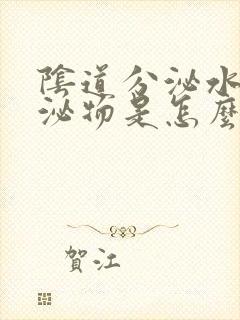 陰道分泌水
泌物是怎麼
賀江